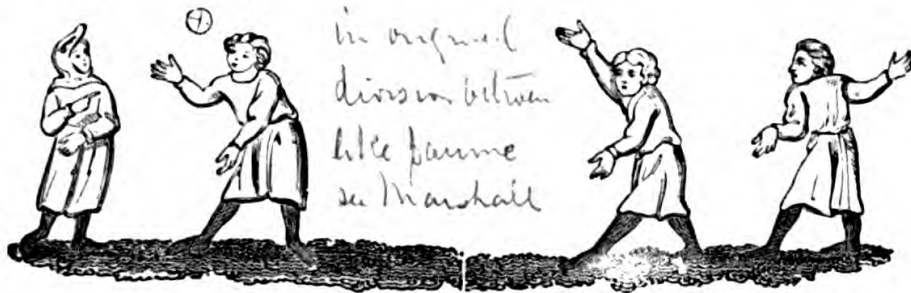 in original
division between
like paume
see Marshall